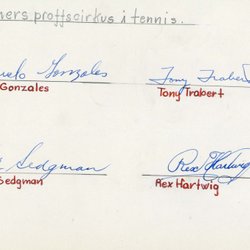 ners proffscirkus i tennis.
Gonzales Tony Trabert
Gonzales Tony Trabert
Sedgman Rex Hartwig
Sedgman Rex Hartwig